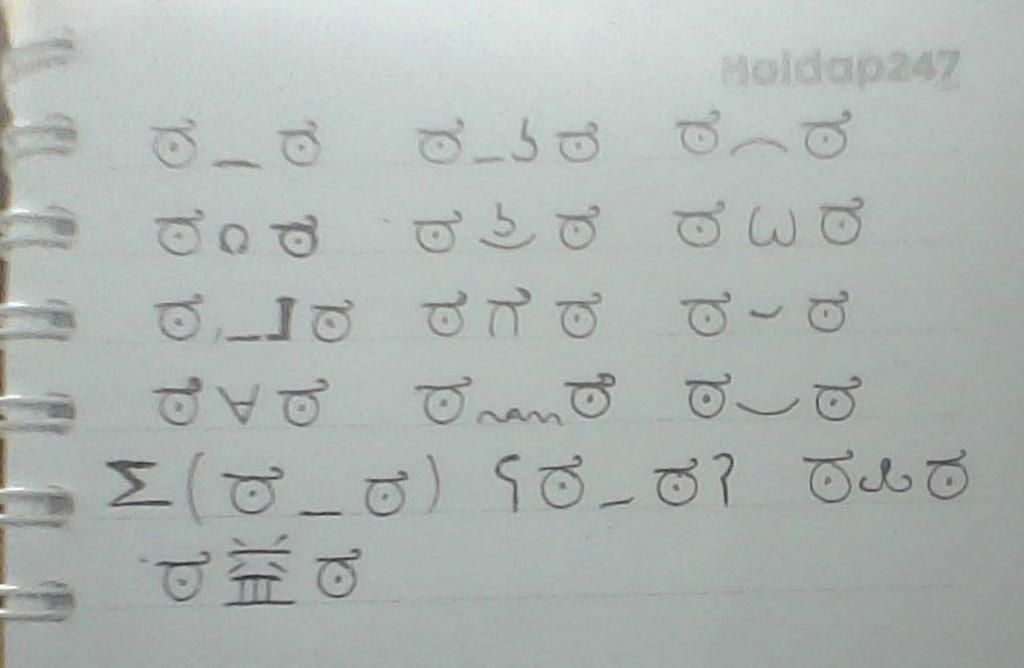 Holdap247
ಠ_ಠ ಠ_ʖಠ ಠ⌒ಠ
ಠ∩ಠ ಠ ͜ʖ ಠ ಠωಠ
ಠ_ಠ ಠಗಠ ಠ⌣ಠ
ಠ∀ಠ ಠ‿ಠ
Σ(ಠ_ಠ) ʕಠ_ಠʔ ಠಠ
ಠ益ಠ